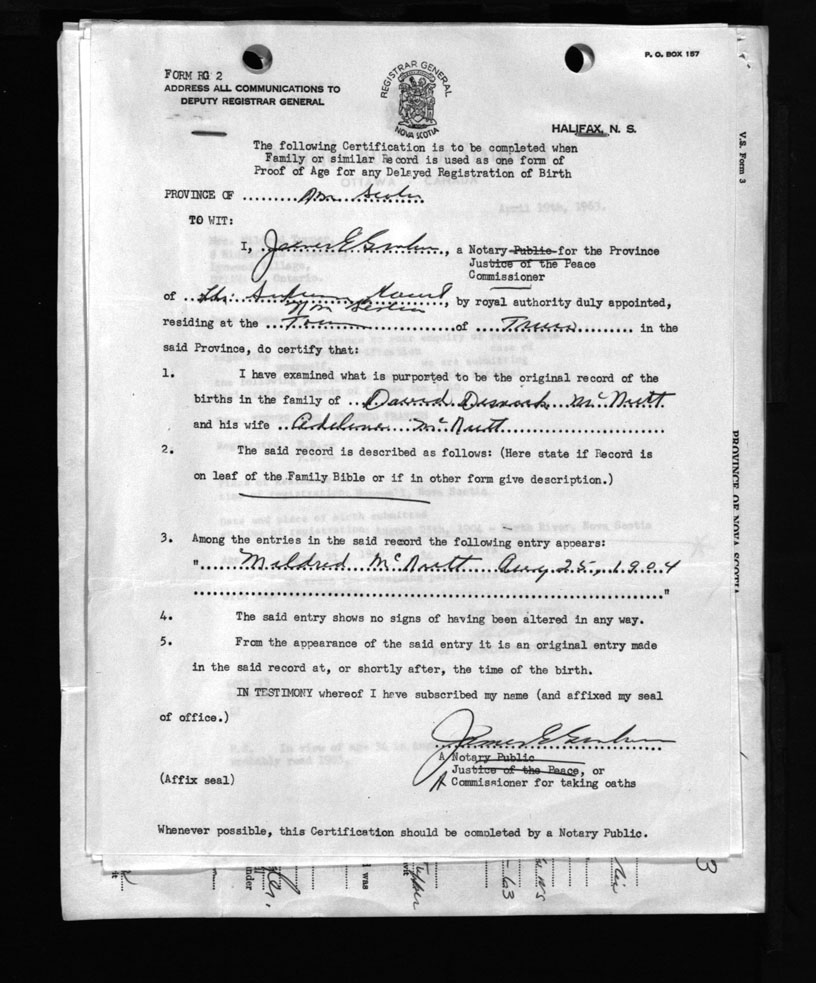 P. O. BOX 157
FORM RG 2
ADDRESS ALL COMMUNICATIONS TO
DEPUTY REGISTRAR GENERAL
REGISTRAR GENERAL
NOVA SCOTIA
HALIFAX, N. S.
The following Certification is to be completed when
Family or similar Record is used as one form of
Proof of Age for any Delayed Registration of Birth
PROVINCE OF Scotia
TO WIT:
I, James E , a Notary Public for the Province
Justice of the Peace
Commissioner
of , by royal authority duly appointed,
Scotia
residing at the Town of Truro in the
said Province, do certify that:
1. I have examined what is purported to be the original record of the
births in the family of David McNutt
and his wife McNutt
2. The said record is described as follows: (Here state if Record is
on leaf of the Family Bible or if in other form give description.)
3. Among the entries in the said record the following entry appears:
" Mildred McNutt Aug 25, 1904
"
4. The said entry shows no signs of having been altered in any way.
5. From the appearance of the said entry it is an original entry made
in the said record at, or shortly after, the time of the birth.
IN TESTIMONY whereof I have subscribed my name (and affixed my seal
of office.)
James E
A Notary Public
Justice of the Peace, or
(Affix seal) A Commissioner for taking oaths
Whenever possible, this Certification should be completed by a Notary Public.
V.S. Form 3
PROVINCE OF NOVA SCOTIA
under
I was
63
3